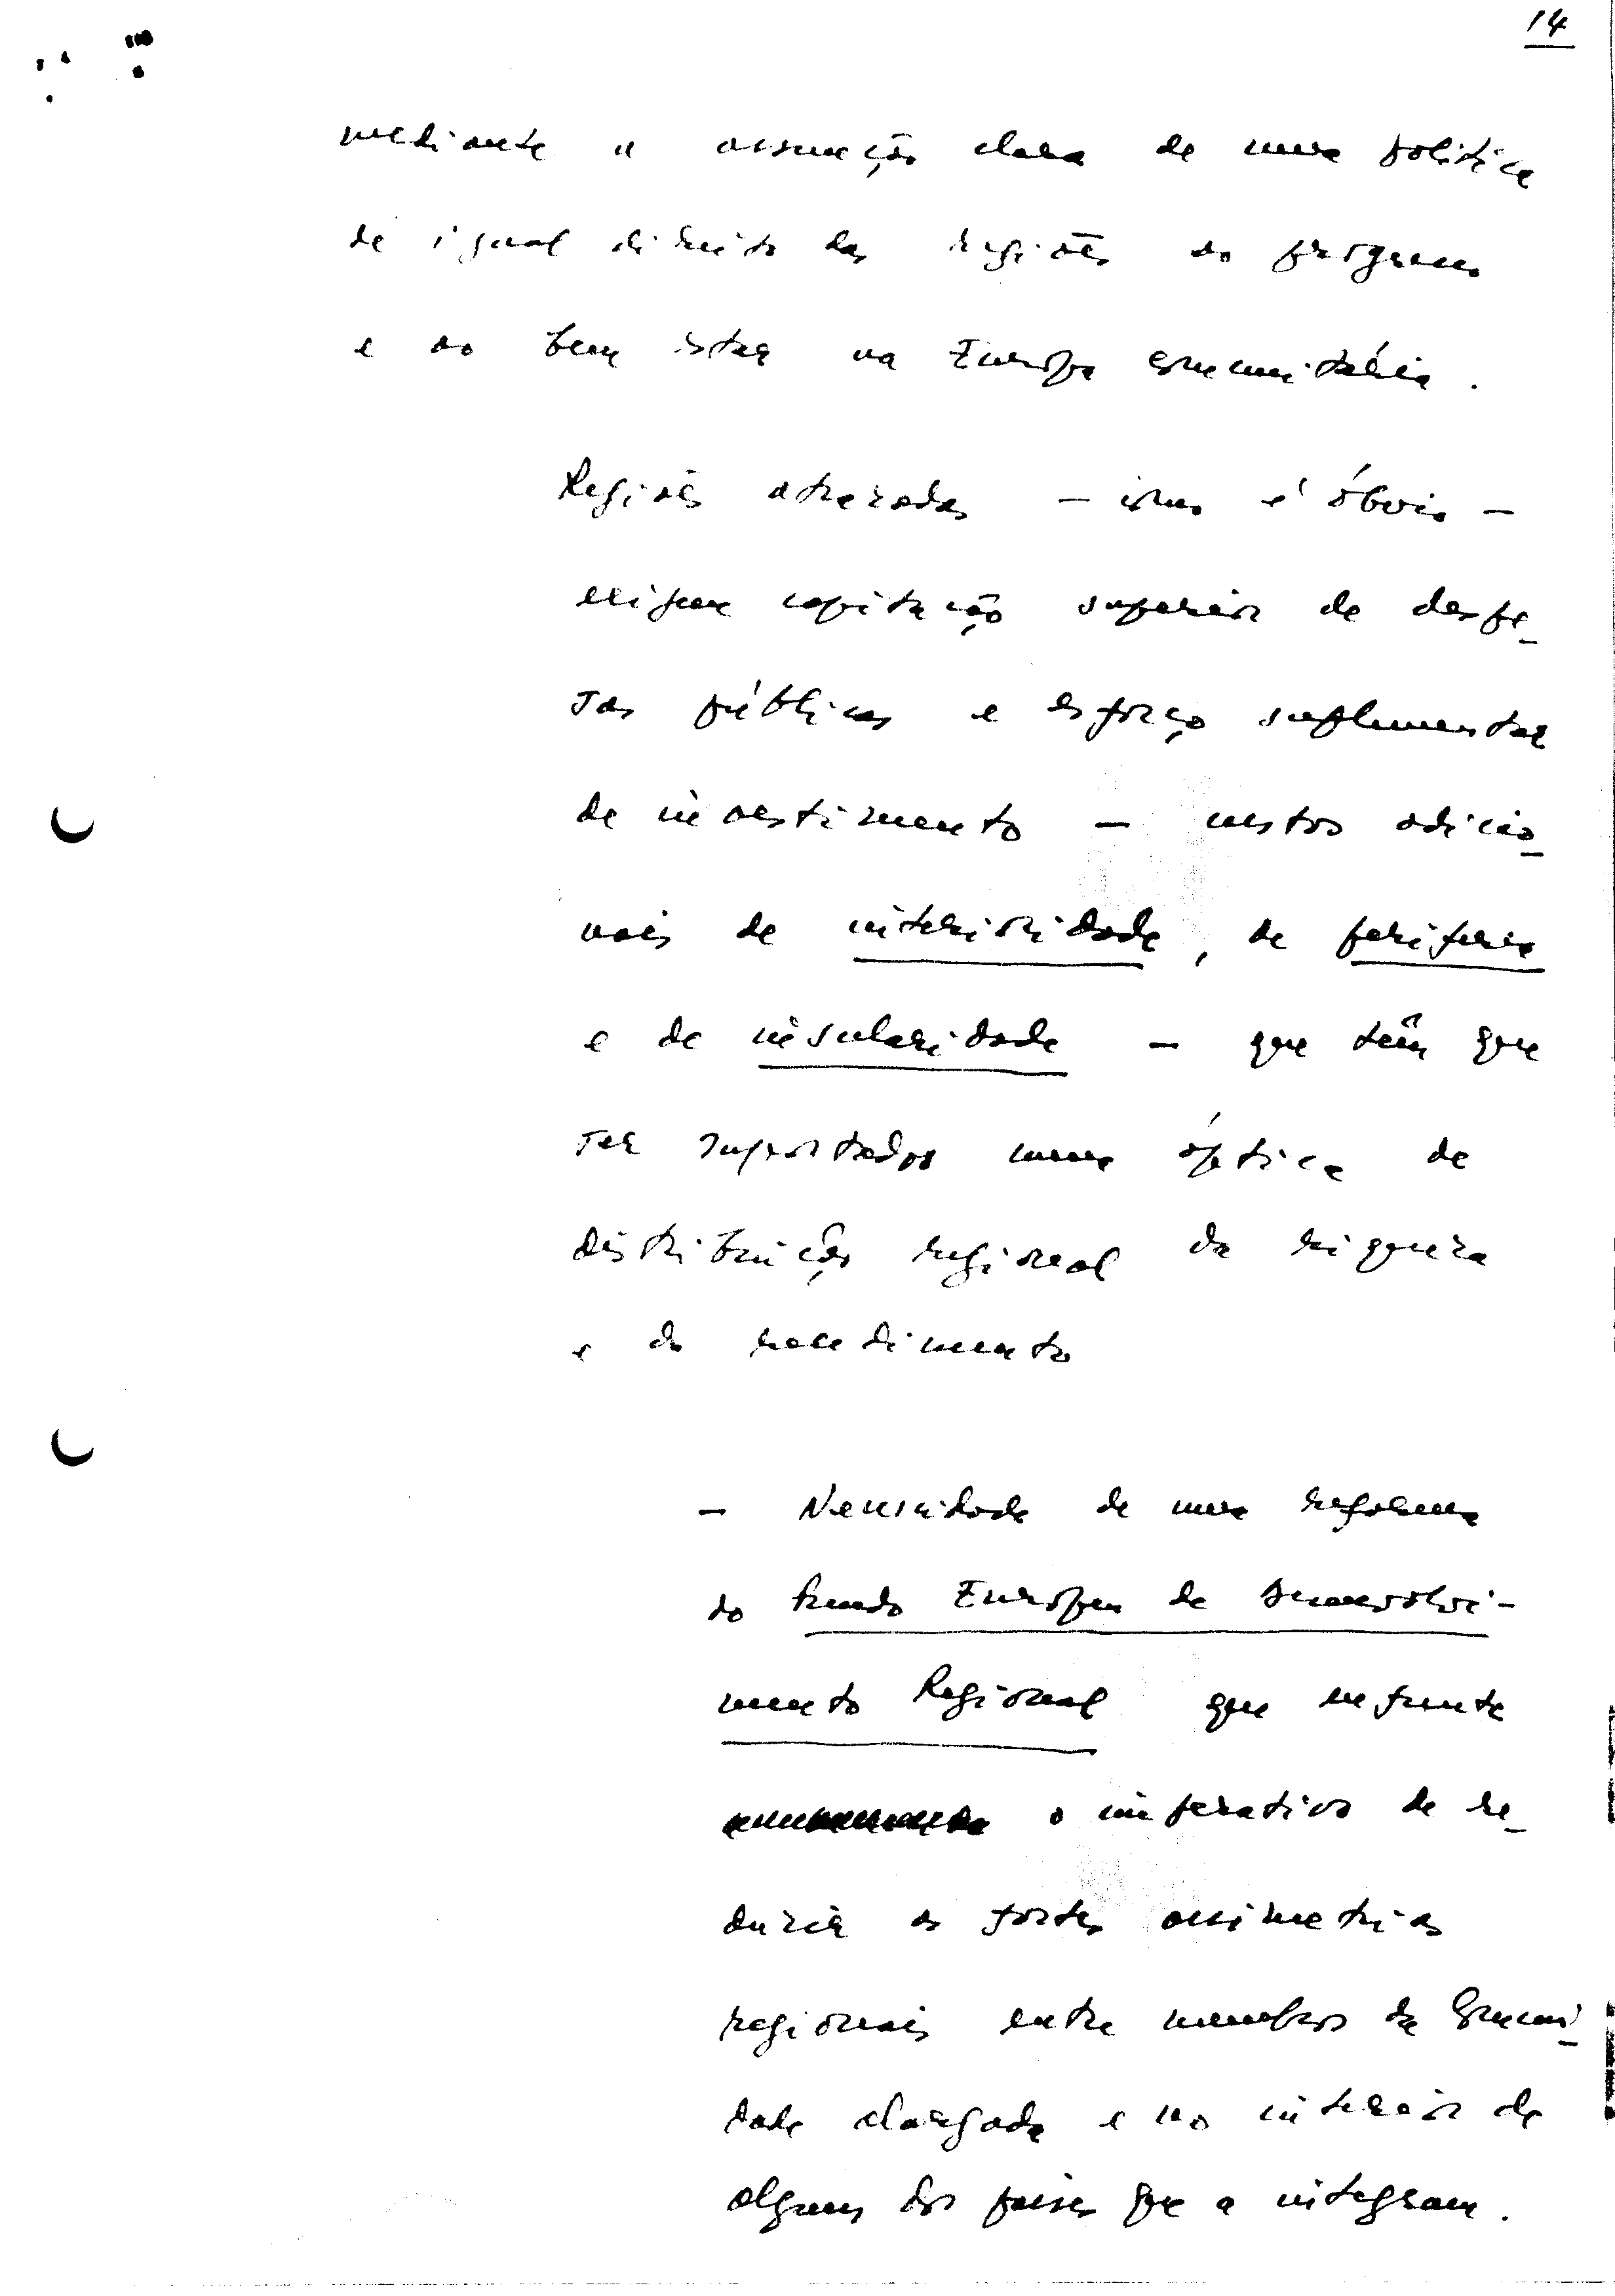 14
mediante a assunção clara de uma política
de igual direito das regiões ao progresso
e ao bem estar na Europa comunitária.
Regiões atrazadas – isso é óbvio –
exigem capitação superior de despe-
sas públicas e esforço suplementar
de investimento – custos adicio-
nais de interioridade, de periferia
e de insularidade – que têm que
ser suportados numa óptica de
distribuição regional da riqueza
e do rendimento
– Necessidade de uma reforma
do Fundo Europeu de Desenvolvi-
mento Regional que enfrente
o imperativo de re-
duzir as fortes assimetrias
regionais entre membros da Comuni-
dade alargada e no interior de
alguns dos países que a integram.